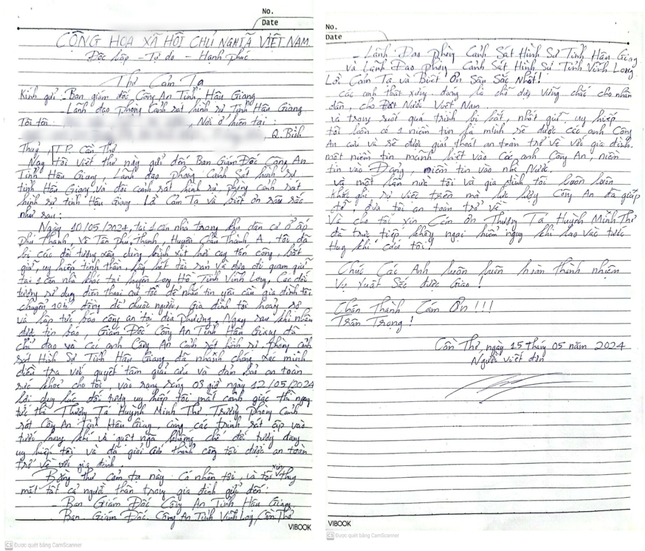 No.
Date
CỘNG HÒA XÃ HỘI CHỦ NGHĨA VIỆT NAM
Độc Lập - Tự do - Hạnh phúc
Thư Cảm Tạ
Kính gửi: Ban giám đốc Công An Tỉnh Hậu Giang
- Lãnh đạo phòng cảnh sát hình sự Tỉnh Hậu Giang
Tôi tên Nơi ở hiện tại:
Q. Bình
Thuỷ TP. Cần Thơ
Nay Tôi viết thư này gửi đến Ban Giám Đốc Công An
Tỉnh Hậu Giang, Lãnh đạo phòng Cảnh sát Hình sự
tỉnh Hậu Giang và đội cảnh sát hình sự phòng cảnh sát
hình sự tỉnh Hậu Giang Lời Cảm Tạ và biết ơn sâu sắc
như sau:
Ngày 10/05/2024, tại 1 căn nhà trong khu dân cư ở ấp
Phú Thạnh, xã Tân Phú Thạnh, Huyện Châu Thành A, tôi đã
bị các đối tượng xông vào cướp tài sản, bắt
giữ, uy hiếp tinh thần,
1 căn nhà khác tại huyện Long Hồ, Tỉnh Vĩnh Long, Các đối
tượng sử dụng điện thoại của tôi để nhắn tin yêu cầu gia đình tôi
chuyển 10 tỉ đồng để chuộc người, Gia đình tôi hoảng sợ
và lập tức báo công an tại địa phương. Ngay sau khi nhận
được tin báo Giám Đốc Công An Tỉnh Hậu Giang đã
chỉ đạo và Các anh Công An cảnh sát hình sự phòng cảnh
sát Hình Sự Tỉnh Hậu Giang đã nhanh chóng xác minh
điều tra với quyết tâm giải cứu và đảm bảo an toàn
sức khoẻ cho tôi, và rạng sáng 03 giờ ngày 12/05/2024
lợi dụng lúc đối tượng uy hiếp tôi mất cảnh giác thì ngay
tức thì Thượng Tá Huỳnh Minh Thơ Trưởng phòng Cảnh
sát Công An Tỉnh Hậu Giang, cùng các trinh sát ập vào
tước hung khí và quật ngã khống chế đối tượng đang
uy hiếp tôi và đã giải cứu thành công tôi được an toàn
trở về với gia đình.
Bằng thư cảm tạ này Cá nhân tôi, và tôi thay
mặt tất cả người thân trong gia đình gửi đến:
- Ban Giám Đốc Công An Tỉnh Hậu Giang
Ban Giám Đốc Công An Tỉnh Vĩnh Long, Cần Thơ
VIBOOK
Được quét bằng CamScanner
No.
Date
- Lãnh Đạo phòng Cảnh Sát Hình Sự Tỉnh Hậu Giang
và Lãnh Đạo phòng Cảnh Sát Hình Sự Tỉnh Vĩnh Long
Lời Cảm Tạ và Biết Ơn Sâu Sắc Nhất!
Các anh thật xứng đáng là chỗ dựa vững chắc cho nhân
dân, cho Đất Nước Việt Nam.
và trong suốt quá trình bị bắt, nhốt giữ, uy hiếp
tôi luôn có 1 niềm tin là mình sẽ được các anh Công
An cứu và sẽ được giải thoát an toàn trở về với gia đình.
một niềm tin mãnh liệt vào Các anh Công An, niềm
tin vào Đảng, niềm tin vào nhà Nước.
và một lần nữa tôi và gia đình tôi luôn luôn
khắc ghi sự việc trên mà lực lượng Công An đã giúp
đỡ đưa tôi an toàn trở về.
Và cho tôi xin Cảm Ơn Thượng Tá Huỳnh Minh Thơ
đã trực tiếp không ngại hiểm nguy khi lao vào tước
Hung khí cứu tôi!
Chúc Các Anh luôn luôn hoàn thành nhiệm
vụ xuất sắc được giao!
Chân Thành Cám Ơn!!!
Trân Trọng!
Cần Thơ, ngày 15 tháng 05 năm 2024
Người viết đơn
VIBOOK
Được quét bằng CamScanner